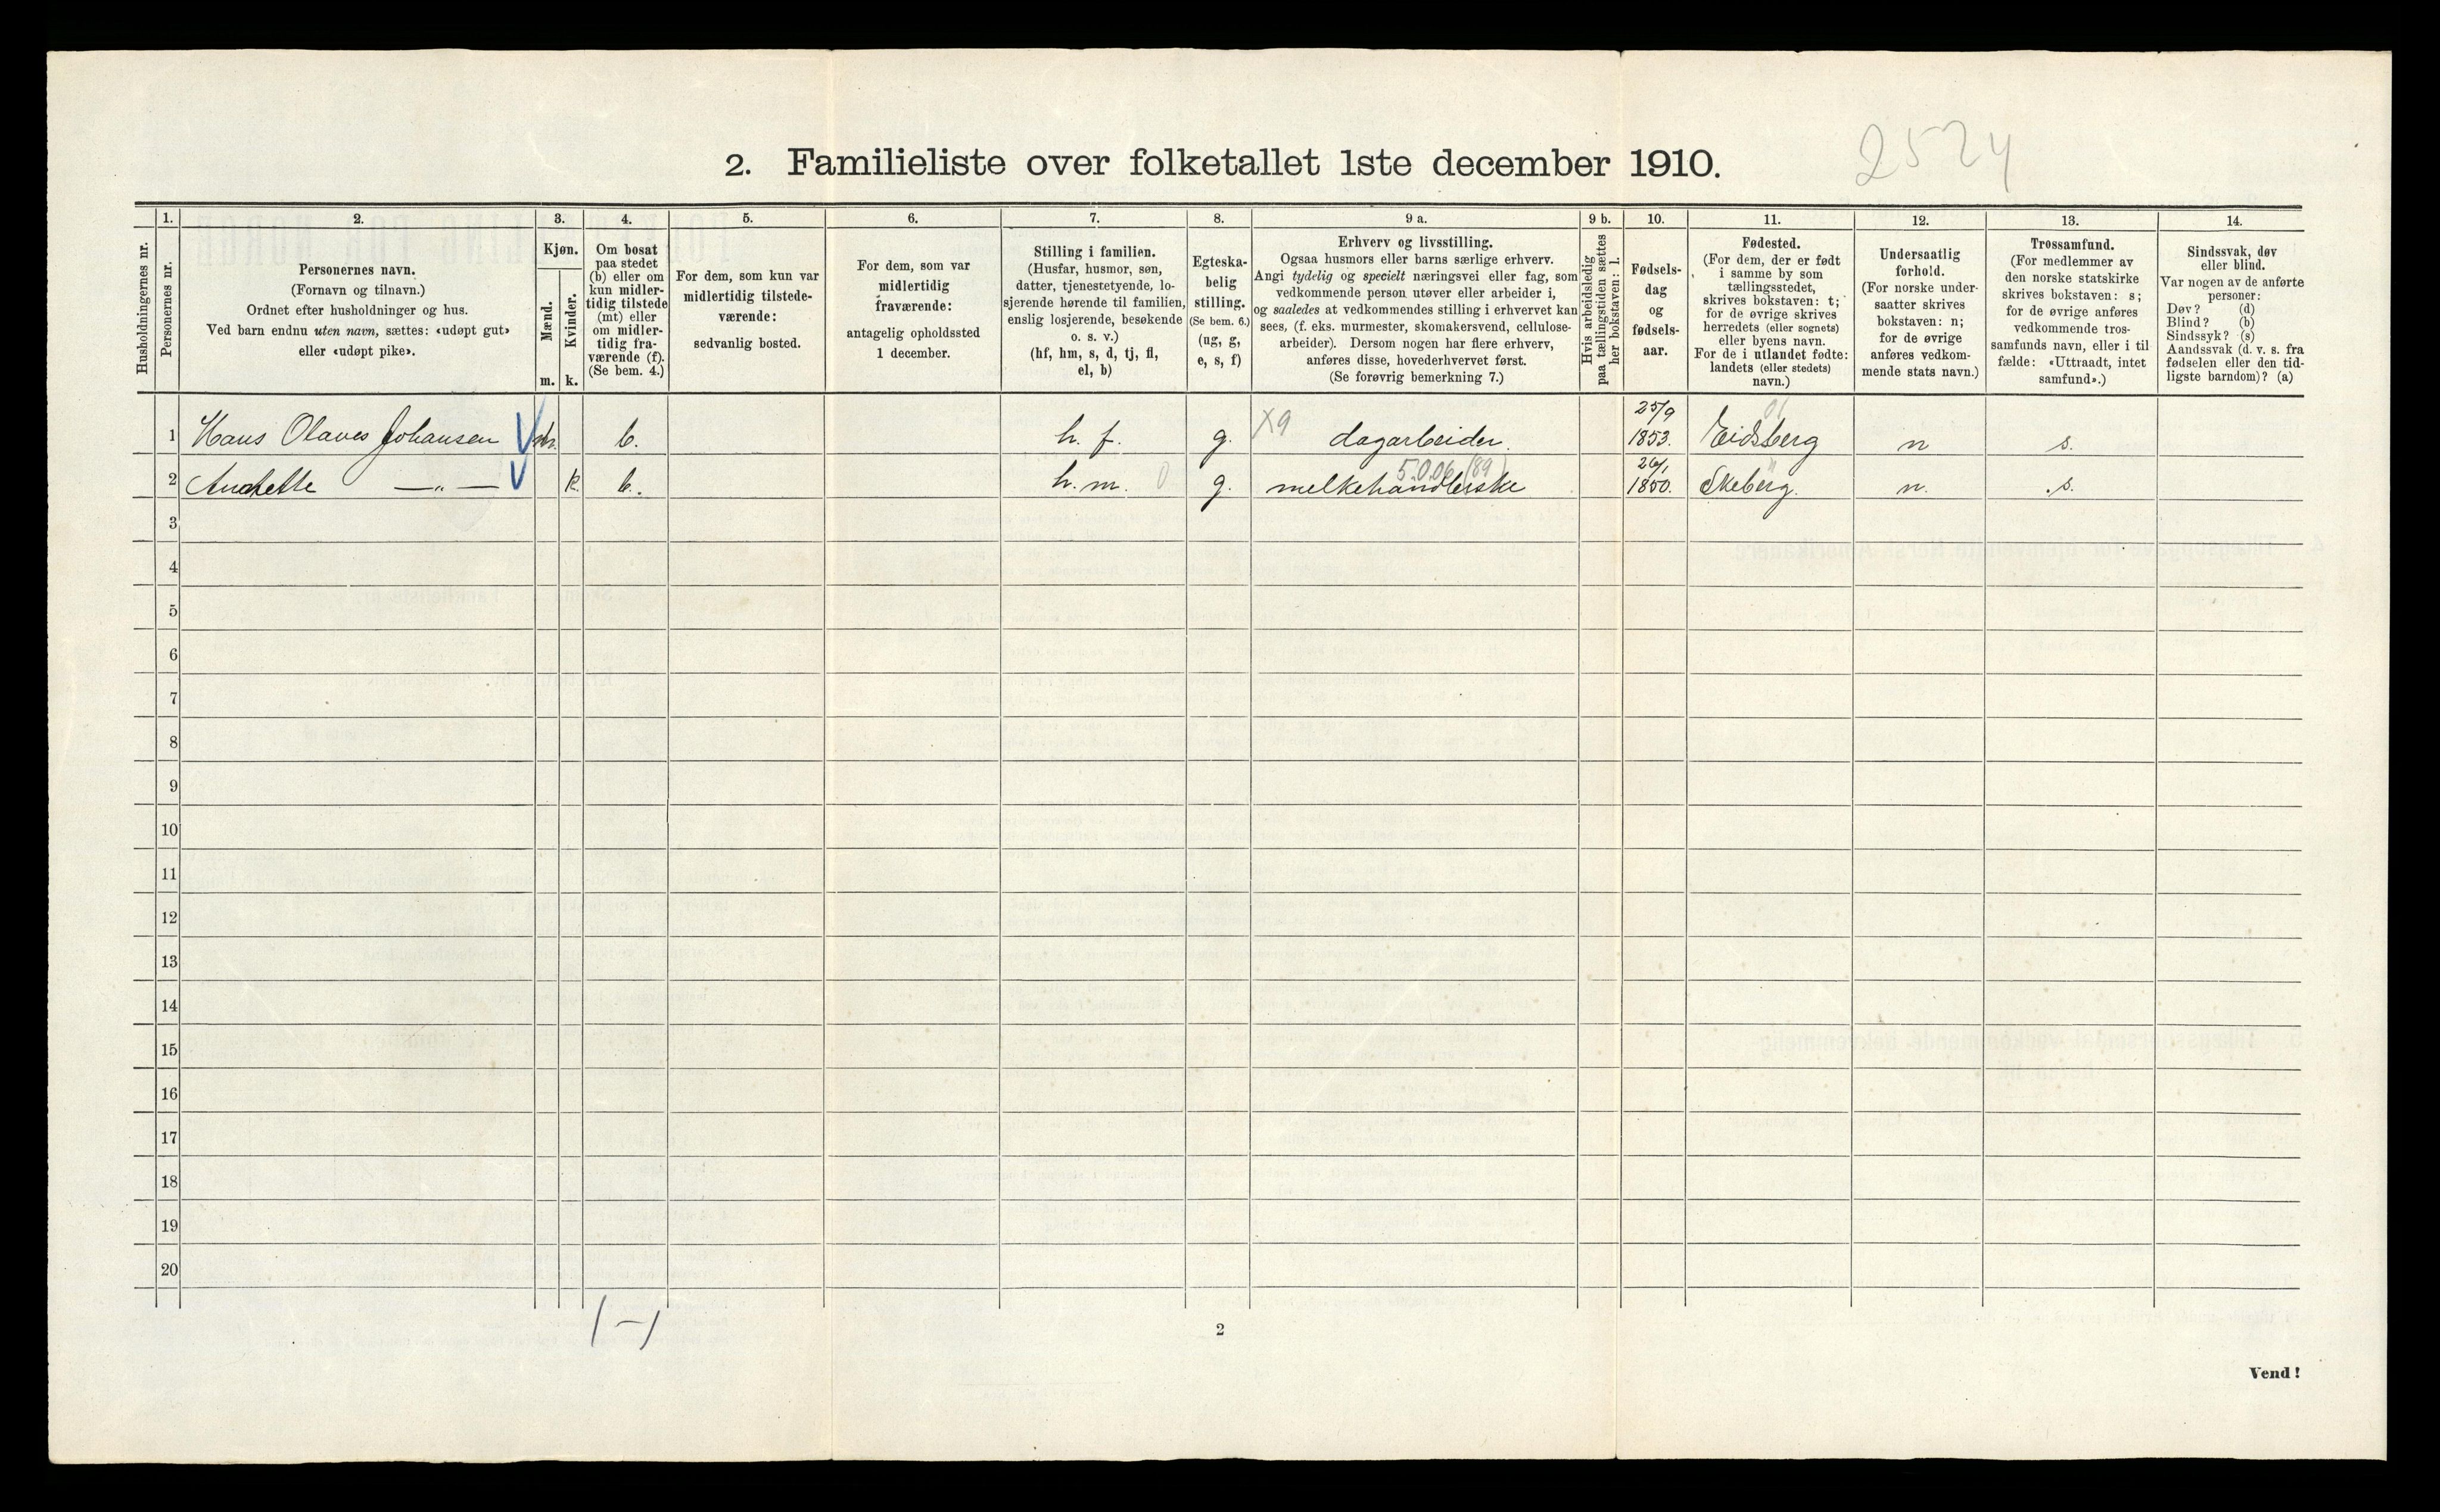 2524
2. Familieliste over folketallet 1ste december 1910.
Husholdningernes nr.
1.
Personernes nr.
2.
Personernes navn.
(Fornavn og tilnavn.)
Ordnet efter husholdninger og hus.
Ved barn endnu uten navn, sættes: «udøpt gut»
eller «udøpt pike».
3.
Kjøn.
Mænd.
Kvinder.
m. k.
4.
Om bosat
paa stedet
(b) eller om
kun midler-
tidig tilstede
(mt) eller
om midler-
tidig fra-
værende (f).
(Se bem. 4.)
5.
For dem, som kun var
midlertidig tilstede-
værende:
sedvanlig bosted.
6.
For dem, som var
midlertidig
fraværende:
antagelig opholdssted
1 december.
7.
Stilling i familien.
(Husfar, husmor, søn,
datter, tjenestetyende, lo-
sjerende hørende til familien,
enslig losjerende, besøkende
o. s. v.)
(hf, hm, s, d, tj, fl,
el, b)
8.
Egteska-
belig
stilling.
(Se bem. 6.)
(ug, g,
e, s, f)
9 a.
Erhverv og livsstilling.
Ogsaa husmors eller barns særlige erhverv.
Angi tydelig og specielt næringsvei eller fag, som
vedkommende person utøver eller arbeider i,
og saaledes at vedkommendes stilling i erhvervet kan
sees, (f. eks. murmester, skomakersvend, cellulose-
arbeider). Dersom nogen har flere erhverv,
anføres disse, hovederhvervet først.
(Se forøvrig bemerkning 7.)
9 b.
Hvis arbeidsledig
paa tællingstiden sættes
her bokstaven: l.
10.
Fødsels-
dag
og
fødsels-
aar.
11.
Fødested.
(For dem, der er født
i samme by som
tællingsstedet,
skrives bokstaven: t;
for de øvrige skrives
herredets (eller sognets)
eller byens navn.
For de i utlandet fødte:
landets (eller stedets)
navn.)
12.
Undersaatlig
forhold.
(For norske under-
saatter skrives
bokstaven: n;
for de øvrige
anføres vedkom-
mende stats navn.)
13.
Trossamfund.
(For medlemmer av
den norske statskirke
skrives bokstaven: s;
for de øvrige anføres
vedkommende tros-
samfunds navn, eller i til
fælde: «Uttraadt, intet
samfund».)
14.
Sindssvak, døv
eller blind.
Var nogen av de anførte
personer:
Døv? (d)
Blind? (b)
Sindssyk? (s)
Aandssvak (d. v. s. fra
fødselen eller den tid-
ligste barndom)? (a)
1 Hans Olaves Johansen m. b. h. f. g. X9 dagarbeider. 25/9 1853. 01 Eidsberg n s.
2 —„— k b. h. m. 0 g. 5.006 (89) melkehandlerske 26/1 1850. " Skeberg. n. s.
3
4
5
6
7
8
9
10
11
12
13
14
15
16
17
18
19
20
1-1
2
Vend!